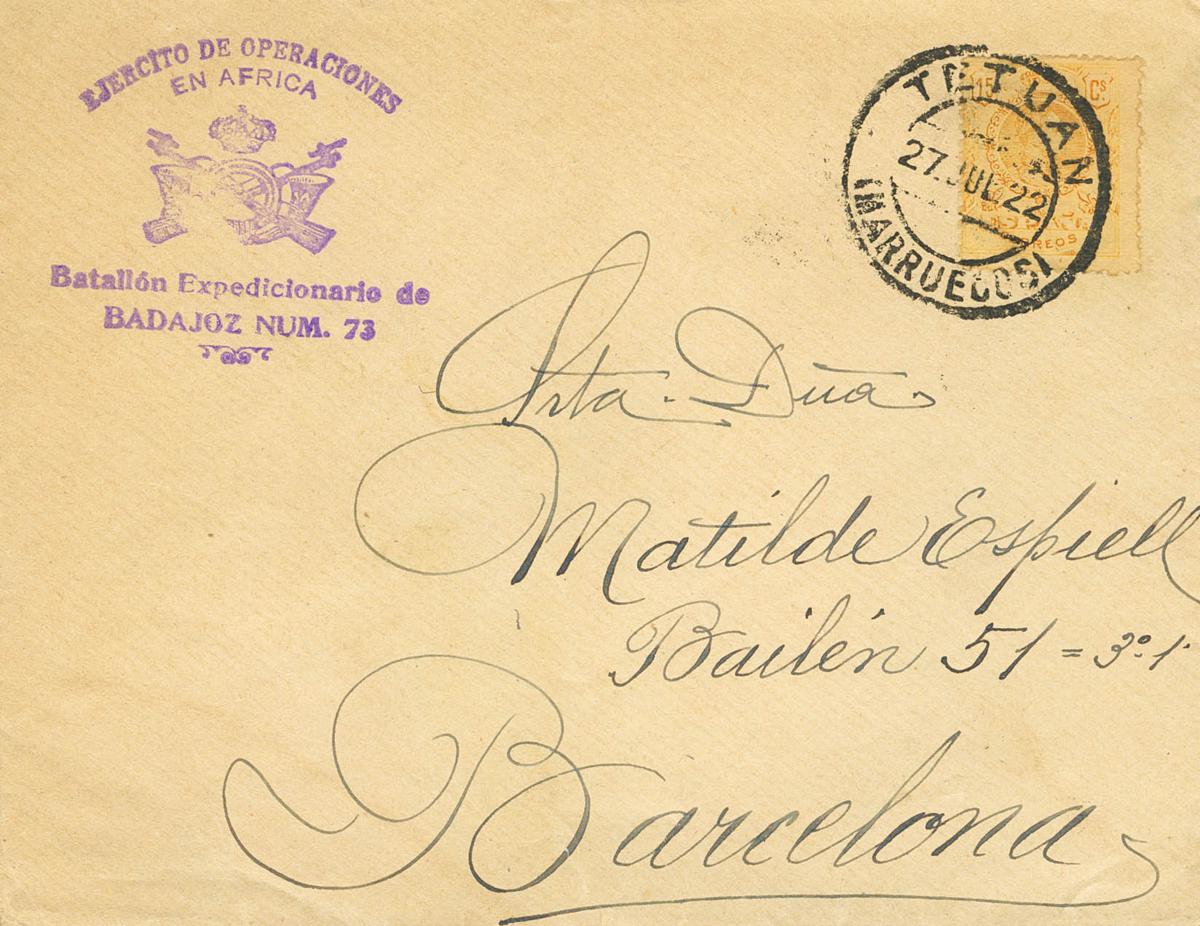 EJERCITO DE OPERACIONES
EN AFRICA
Batallón Expedicionario de
BADAJOZ NUM. 73
TETUAN
27.JUL.22
(MARRUECOS)
15 Cs
CORREOS
Srta. Dña
Matilde Espiell
Bailén 51 = 3º 1ª
Barcelona